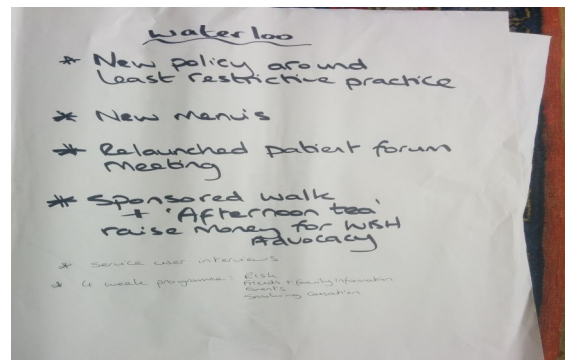 waterloo
* New policy around
least restrictive practice
* New menu's
* Relaunched patient forum
meeting
* Sponsored walk
+ 'Afternoon tea'
raise money for WISH
Advocacy
* service user interviews
* 4 week programme: Risk
Friends + family information
Events
Smoking Cessation